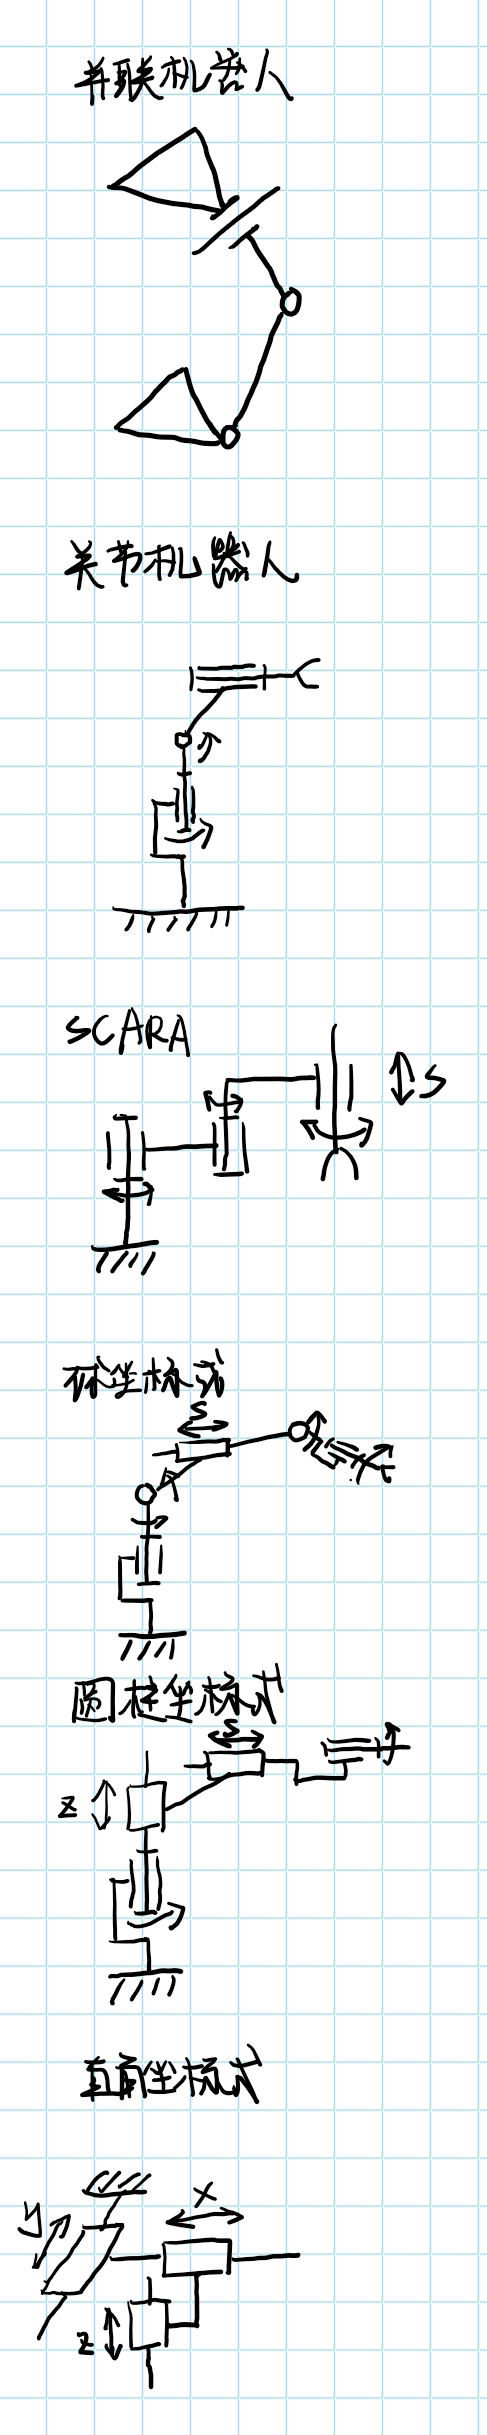 并联机器人
关节机器人
SCARA
S
球坐标式
S
圆柱坐标式
S
Z
直角坐标式
X
y
Z